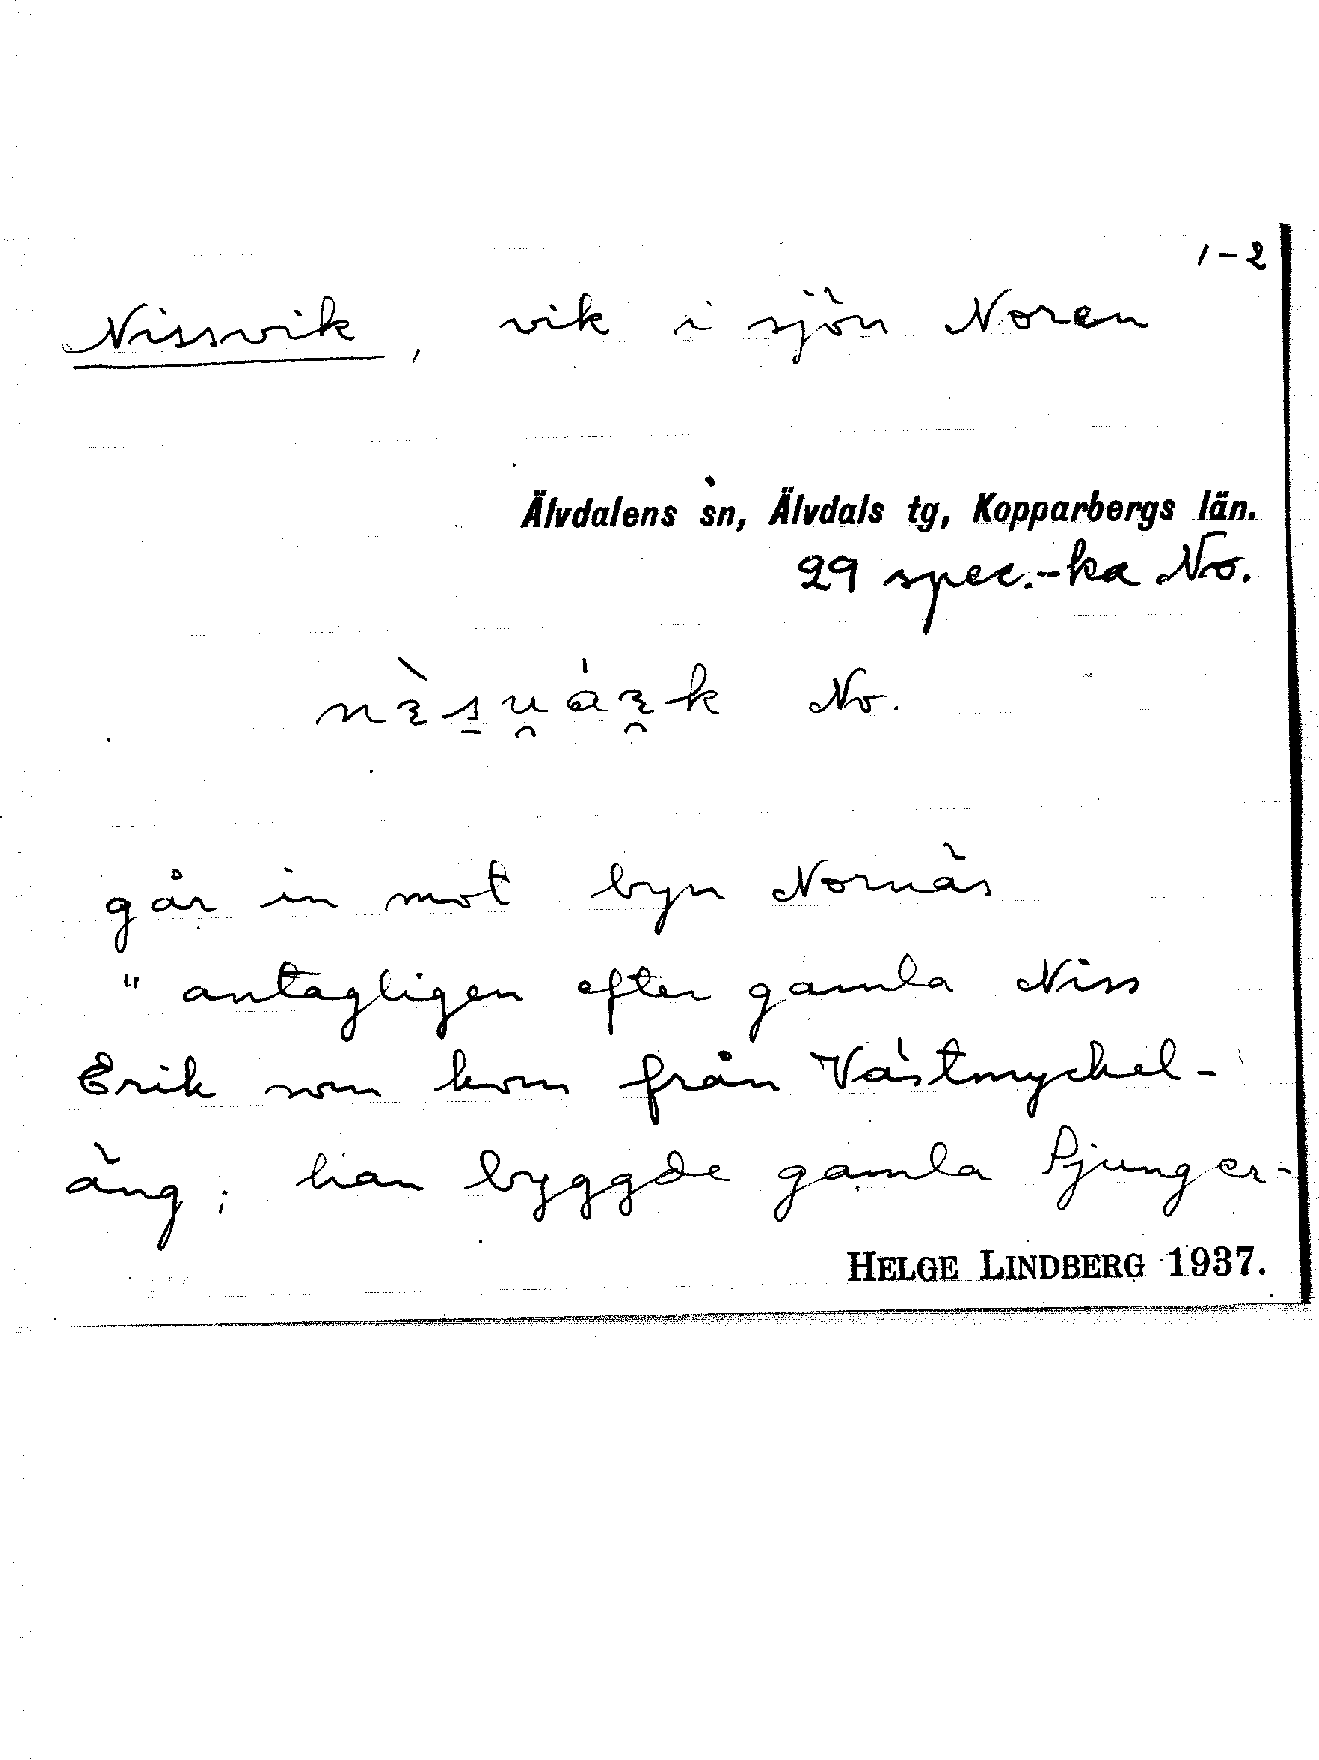 1-2
Nissvik, vik i sjön Noren
Älvdalens sn, Älvdals tg, Kopparbergs län.
29 spec.-ka No.
No.
går in mot byn Nornäs
" antagligen efter gamla Niss
Erik som kom från Västmyckel-
äng; han byggde gamla Pjunger-
HELGE LINDBERG 1937.